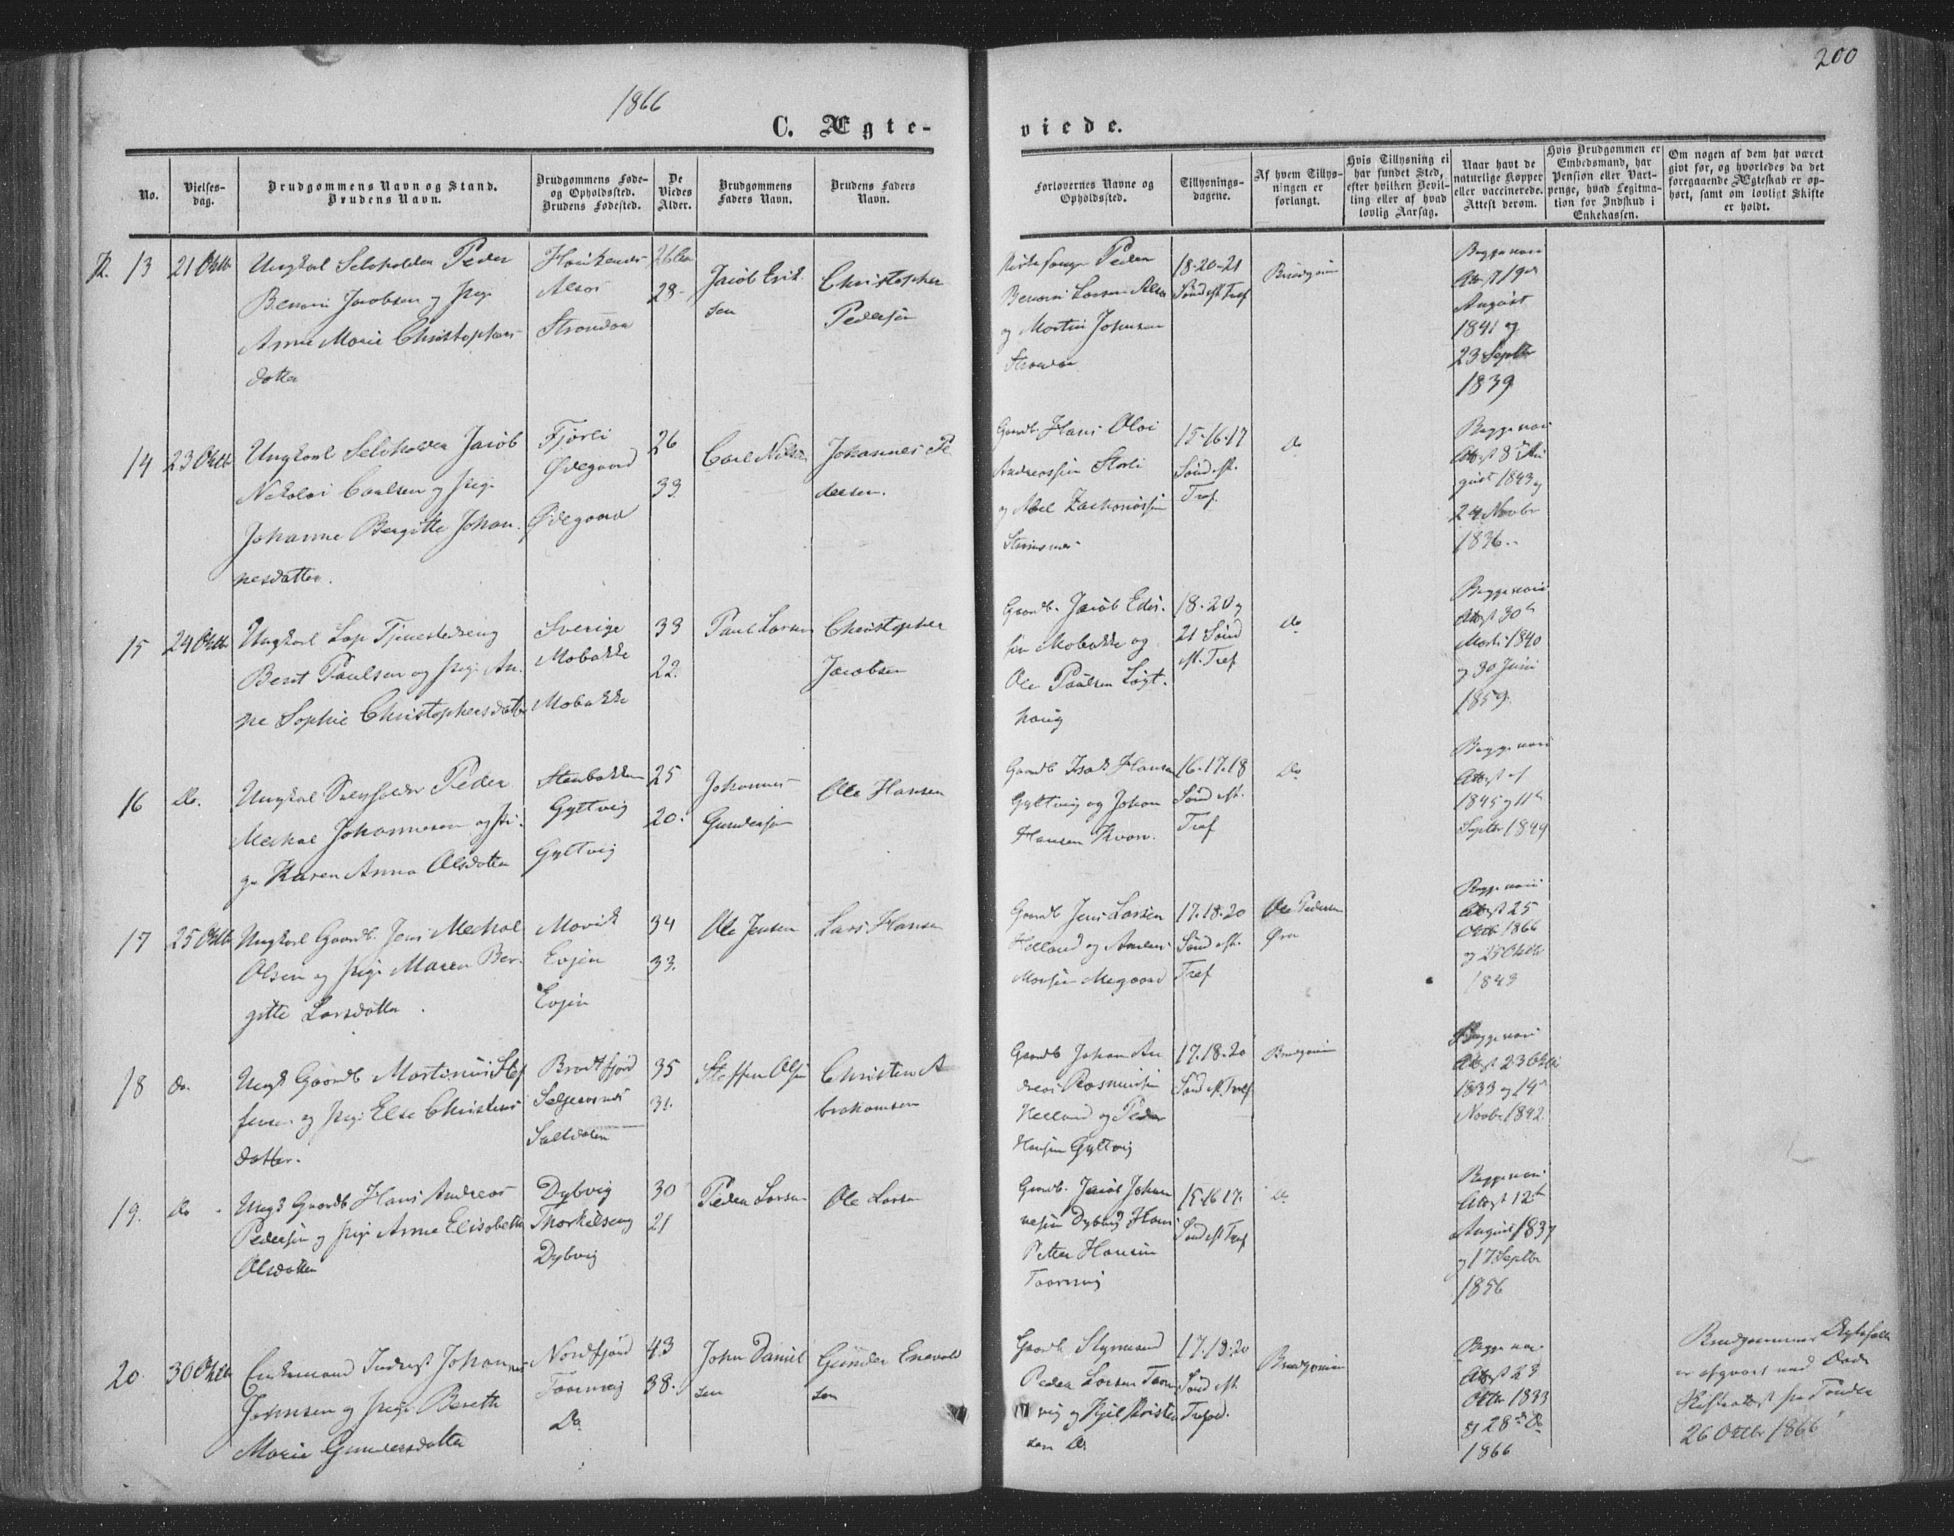 200
1866
C. Ægte-
viede.
No.
Vielses-
dag.
Brudgommens Navn og Stand.
Brudens Navn.
Brudgommens Føde-
og Opholdssted.
Brudens Fødested.
De
Viedes
Alder.
Brudgommens
Faders Navn.
Brudens Faders
Navn.
Forlovernes Navne og
Opholdssted.
Tillysnings-
dagene.
Af hvem Tillys-
ningen er
forlangt.
Hvis Tillysning ei
har fundet Sted,
efter hvilken Bevil-
ling eller af hvad
lovlig Aarsag.
Naar havt de
naturlige Kopper
eller vaccinerede.
Attest derom.
Hvis Brudgommen er
Embedsmand, har
Pension eller Vart-
penge, hvad Legitma-
tion for Indskud i
Enkekassen.
Om nogen af dem har været
gift før, og hvorledes da det
foregaaende Ægteskab er op-
hørt, samt om lovligt Skifte
er holdt.
13
21 Oktb
Ungkarl Selvholden Peder
Benoni Jacobsen og Pige
Anne Marie Christophers
datter
Alsos
Strandaa
28
Jacob Erik
sen
Christopher
Pedersen
Peder
Benoni Larsen Alsos
og Martin Johnsen
Strandaa
18-20-21
Sønd eft Tref
Brudgom
Begge vacc
Attest 19de
August
1841 og
23 Septbr
1839
14
23 Oktb
Ungkarl Selvholden Jacob
Nikolai Carlsen og Pige
Johanne Bergitte Johan
nesdatter.
Fjørli
Ødegaard
Ødegaard
26
33
Carl Nilsen
Johannes Pe
dersen.
Gaardb. Hans Olai
Andreassen Storli
og Abel Zachariassen
15-16-17
Sønd eft.
Tref.
Do
Begge vacc
Attest 8de Au
gust 1843 og
24 Novbr
1836
15
24 Oktb
Ungkarl Lap Tjenestedreng
Bent Paulsen og Pige An
ne Sophie Christophersdatter
Sverige
Mobakke
Mobakke
33
22.
Paul Larsen
Christopher
Jacobsen
Gaardb. Jacob Edis-
sen Mobakke og
Ole Paulsen Løgt-
haug
18-20 og
21 Sønd
eft. Tref
Do
Begge vacc
Attest 30te
Marts 1840
og 30 Juni
1859
16
Do.
Ungkarl Selvholden Peder
Mechal Johannesen og Pi
ge Karen Anna Olsdatter
Stenbakken
Gyltvig
Gyltvig
25
20.
Johannes
Gundersen
Ole Hansen
Gaardb Isak Hansen
Gyltvig og Johan
Hansen Kvarv.
16-17-18
Sønd eft.
Tref
Do
Begge vacc
Attest af
1845 og 11te
Septbr 1849
17
25 Oktb
Ungkarl Gaardb. Jens Mechal
Olsen og Pige Maren Ber-
gitte Larsdatter
Movik
Evjen
Evjen
34
33.
Ole Jensen
Lars Hansen
Gaardb Jens Larsen
Helland og Anders
17-18-20
Sønd eft.
Tref
Ole Pedersen
Øra
Begge vacc
Attest 25
Oktb 1866
og 25 Oktb
1843
18
Do.
Ungk Gaardb Martinus Stef
fensen og Pige Else Christens
datter.
Brodtfjord
Saltdalen
35
31.
Steffen Olsen
Christen A
brahamsen
Gaardb Johan An
dreas Rasmussen
Helland og Peder
Hansen Gyltvig
17-18-20
Sønd eft Tref
Brudgom
Begge vacc
Attest 23 Oktb
1833 og 14de
Novbr 1842
19.
Do
Ungk Gaardb Hans Andreas
Pedersen og Pige Anne Elisabeth
Olsdatter
Dybvig
Thorkilseng
Dybvig
30
21
Peder Larsen
Ole Larsen
Gaardb. Jacob Johan
nesen Dybvig Hans
Petter Hansen
Taarnvig
15-16-17.
Sønd eft Tref
Do
Begge vacc
Attest 12te
August 1837
og 17 Septbr
1856
20.
30 Oktb
Enkemand Indrest Johannes
Johnsen og Pige Bereth
Marie Gundersdatter
Nordfjord
Taarnvig
Do.
43
38.
John Daniel
sen
Gunder Enevold
sen
Gaardb. Styrmand
Peder Larsen Taarn
vig og Kjel Christen
sen Do.
17-18-20
Sønd eft.
Trefod.
Brudgommen
Begge vacc
Attest 23
Oktbr 1833
og 28de Do
1866
Brudgommens Ægteskab
er afgjort ved Døde
Skifteattest fra Fonden
26 Oktbr 1866